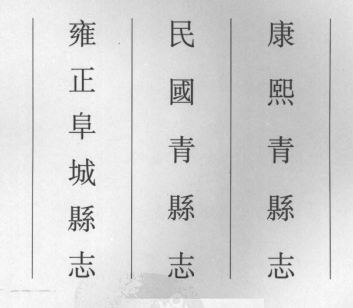 康熙青縣志
民國青縣志
雍正阜城縣志